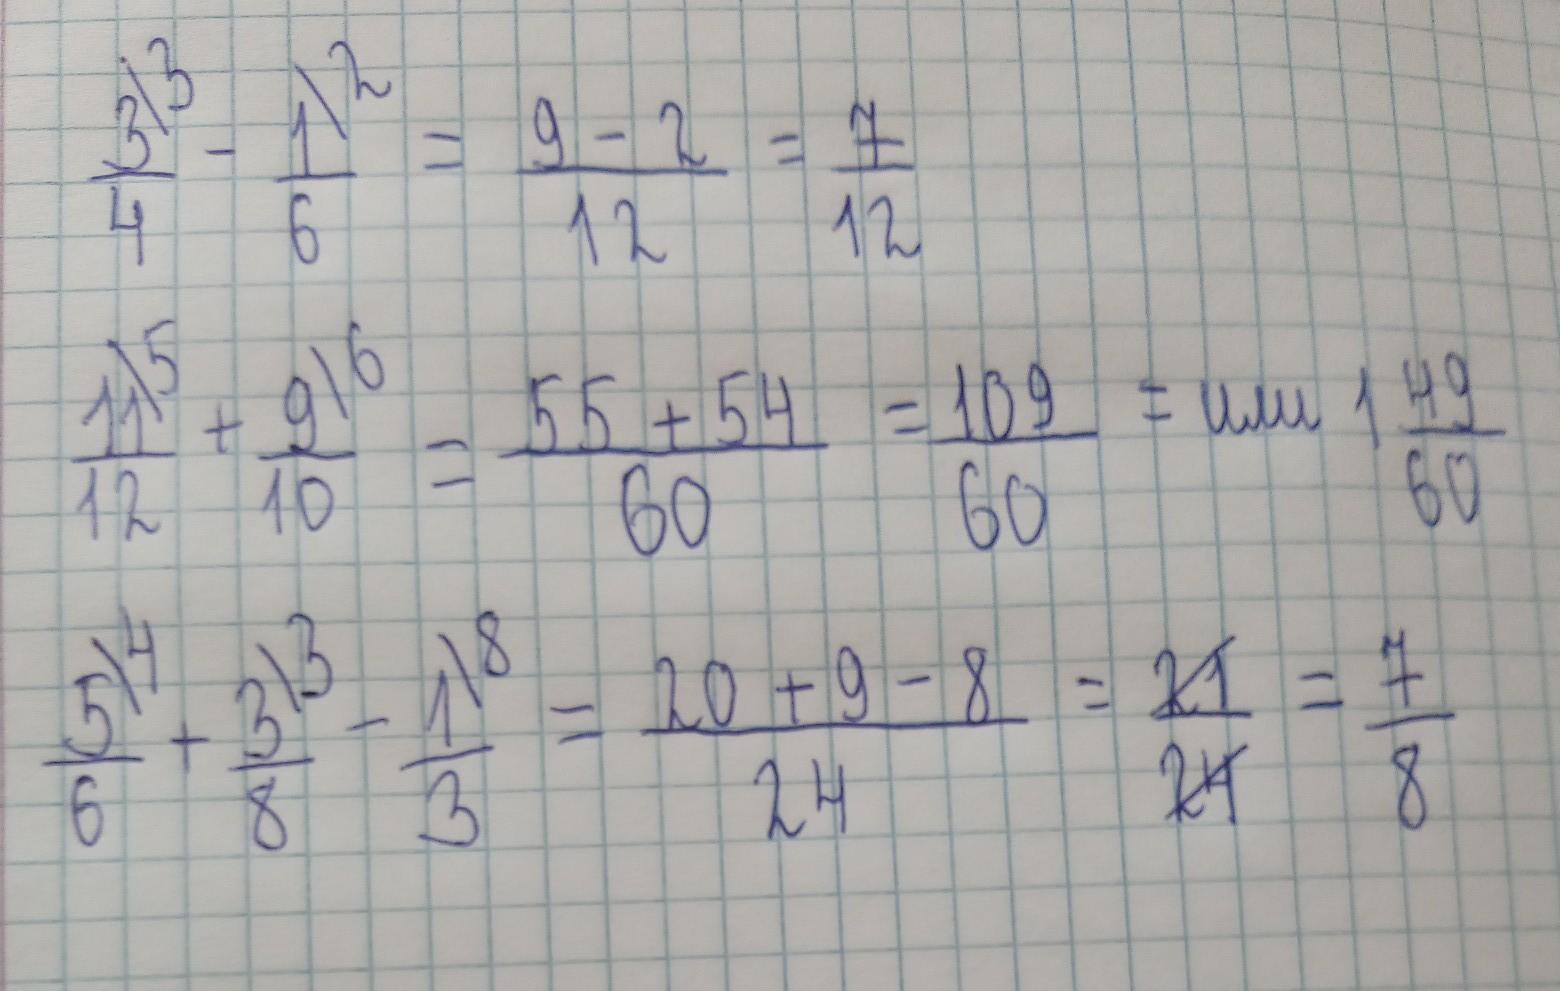 3\3/4 - 1\2/6 = 9 - 2/12 = 7/12
11\5/12 + 9\6/10 = 55 + 54/60 = 109/60 = или 1 49/60
5\4/6 + 3\3/8 - 1\8/3 = 20 + 9 - 8/24 = 21/24 = 7/8